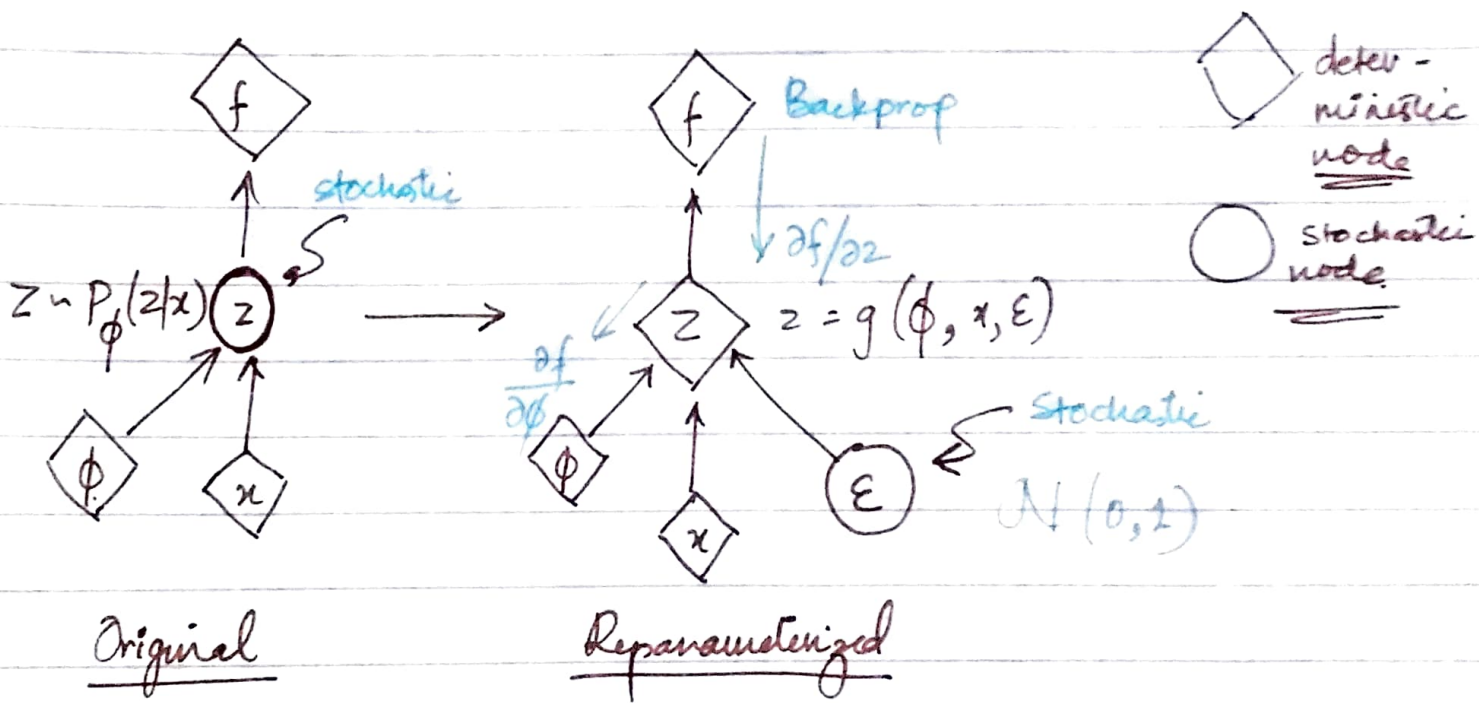 f
stochastic
z ~ P_φ(z|x)
z
φ
x
Original
f
Backprop
∂f/∂z
z
z = g(φ, x, ε)
∂f/∂φ
φ
x
ε
Stochastic
N(0,1)
Reparameterized
deter-
ministic
node
stochastic
node